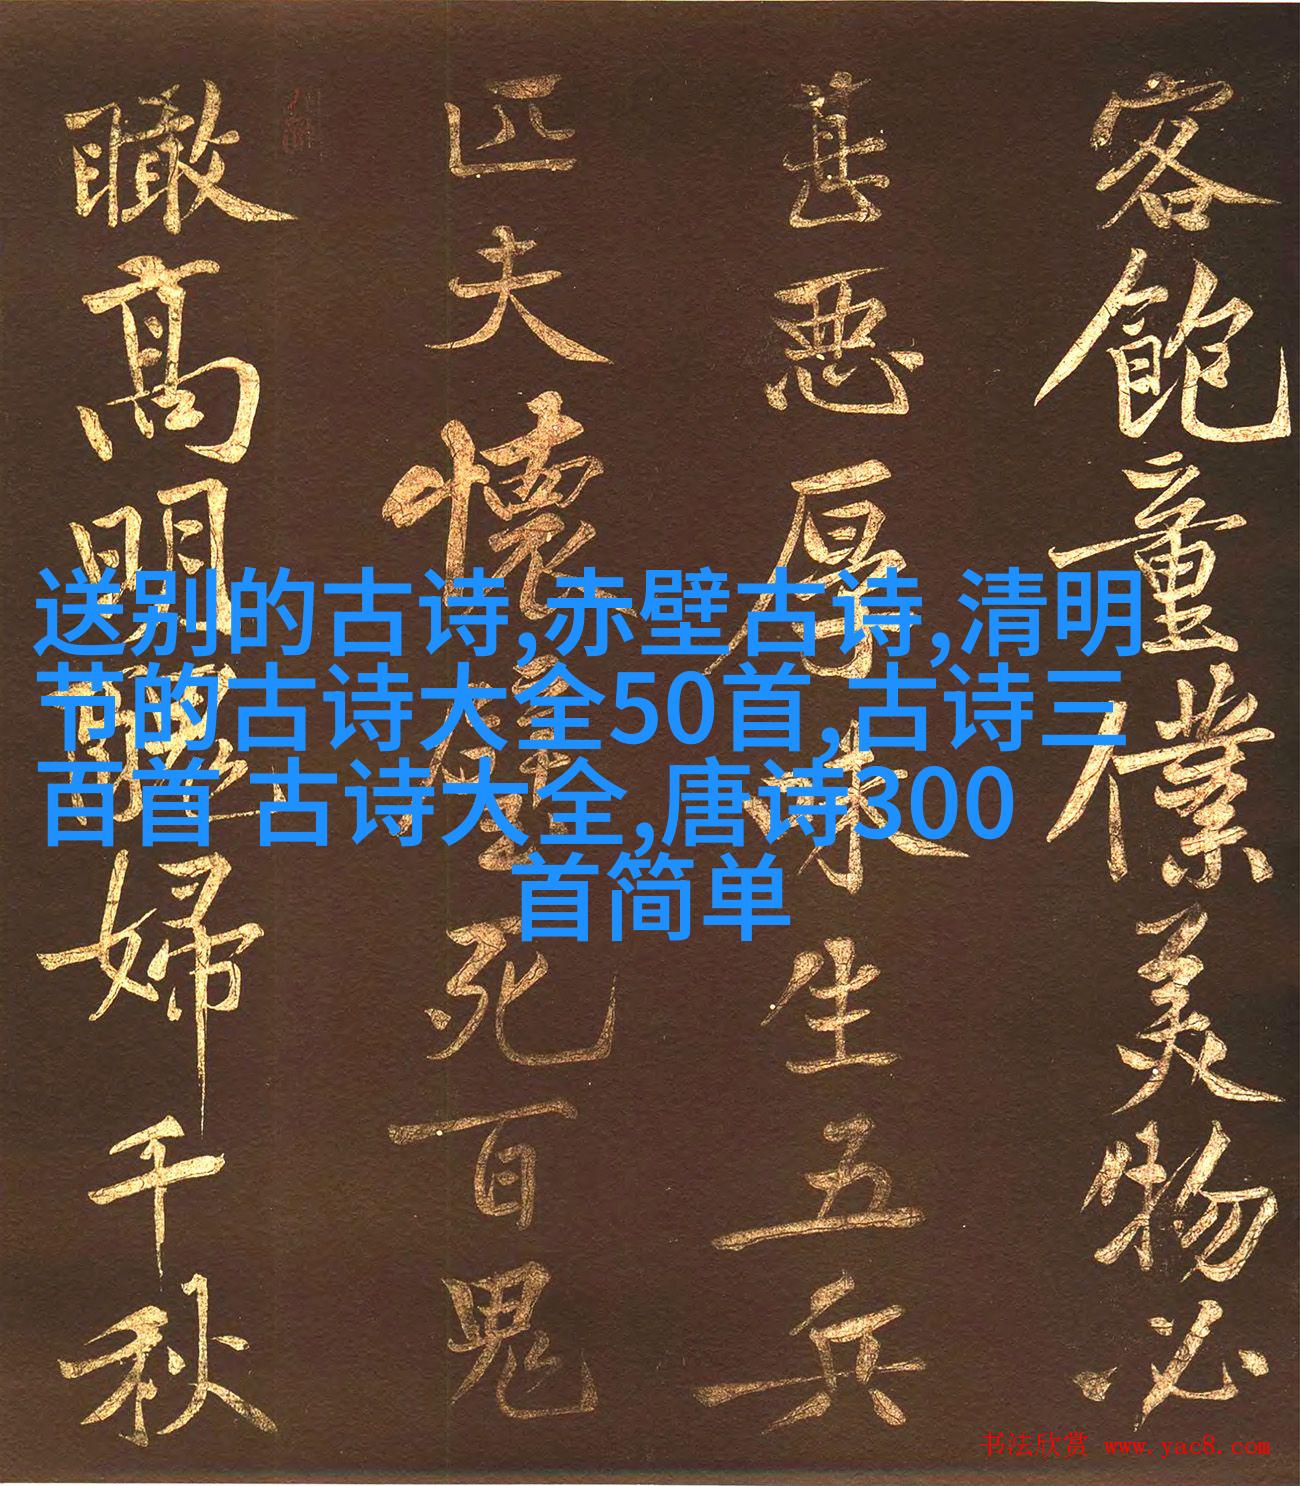 客飽童僕美物必
甚惡厚味生五兵
匹夫懷璧死百鬼
瞰高明醜婦千秋
送别的古诗,赤壁古诗,清明
节的古诗大全50首,古诗三
百首 古诗大全,唐诗300
首简单
书法欣赏 www.yac8.com